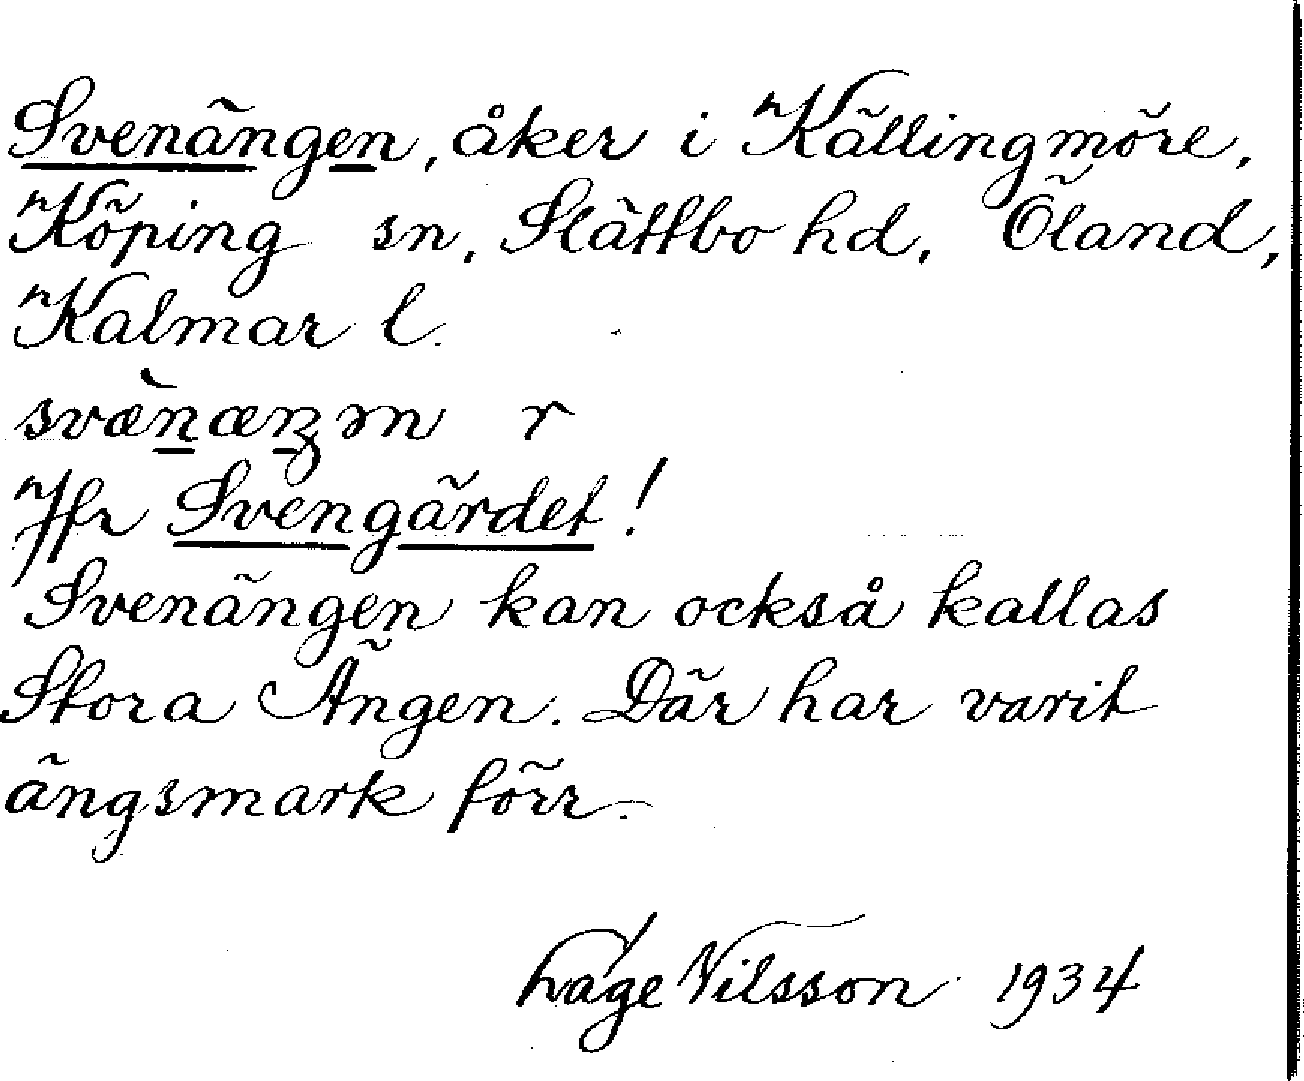 Svenängen, åker i Källingmöre,
Köping sn, Slättbo hd, Öland,
Kalmar l.
svæ̀næŋən r
Jfr Svengärdet!
Svenängen kan också kallas
Stora Ängen. Där har varit
ängsmark förr.
Nilsson 1934